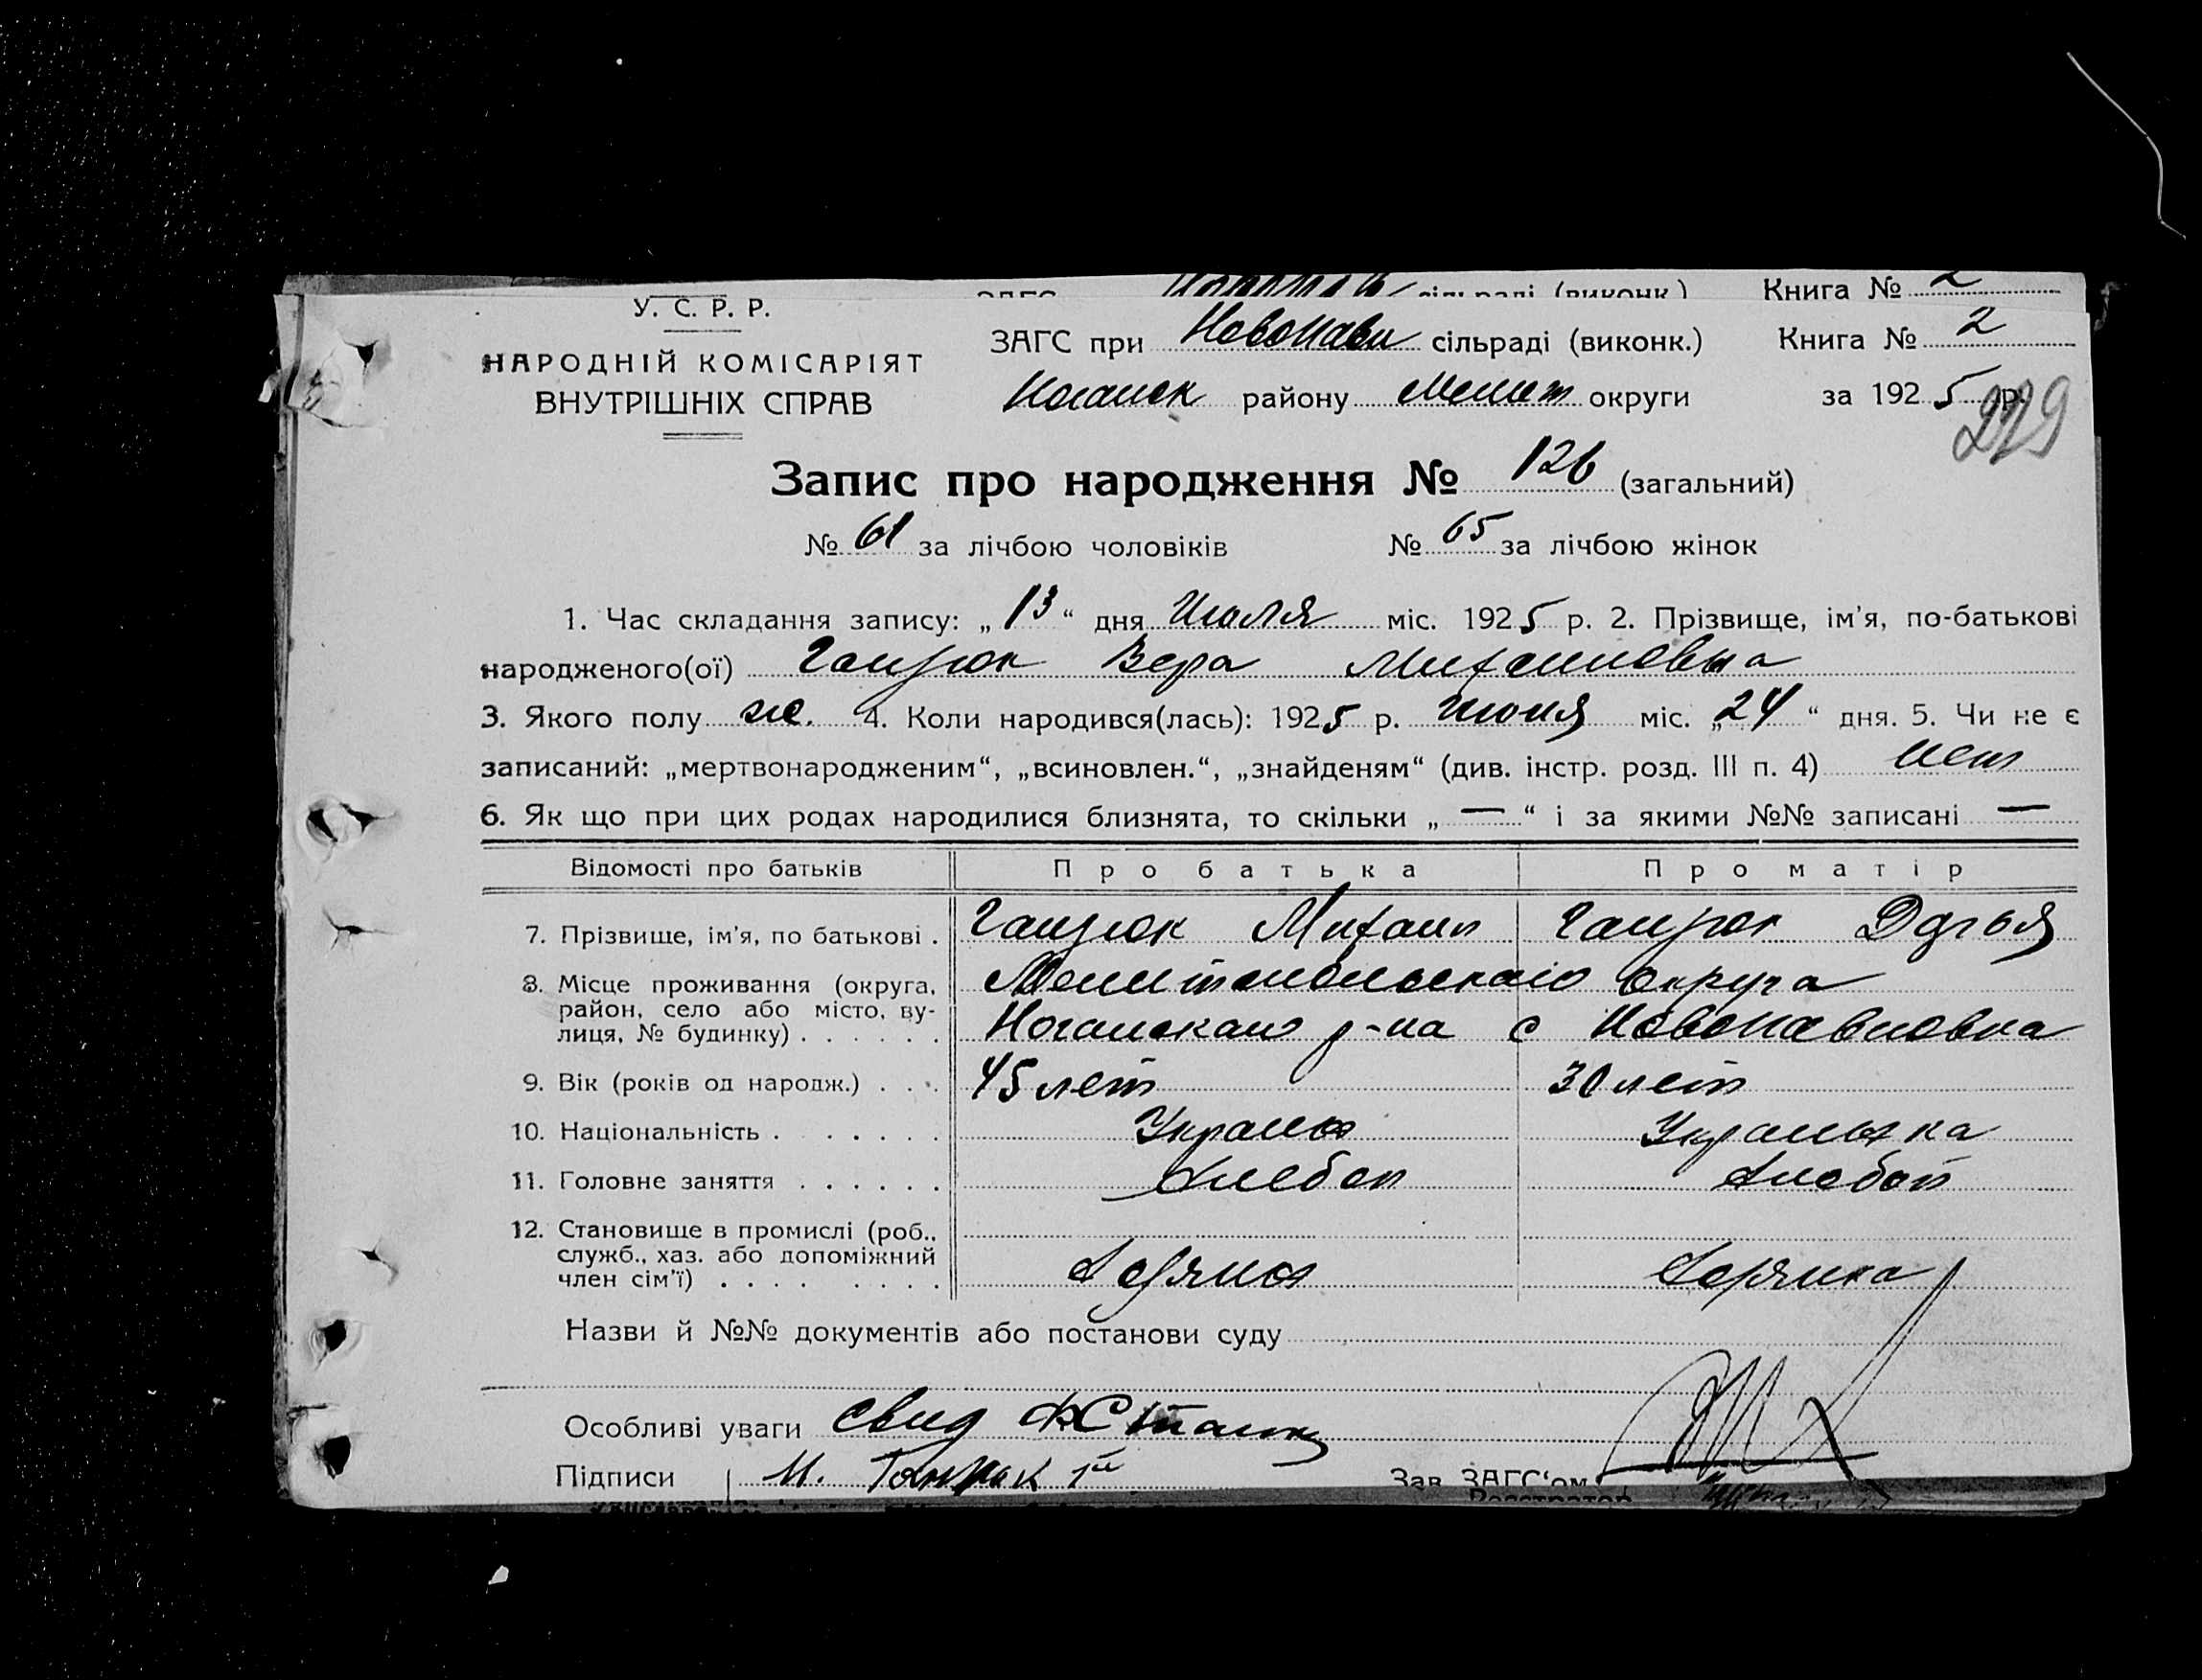 Книга № 2
У. С. Р. Р.
НАРОДНІЙ КОМІСАРІЯТ
ВНУТРІШНІХ СПРАВ
ЗАГС при Новопавл сільраді (виконк.) Книга № 2
Ногайск району Мелит округи за 1925 р.
229
Запис про народження № 126 (загальний)
№ 61 за лічбою чоловіків № 65 за лічбою жінок
1. Час складання запису: „13“ дня Июля міс. 1925 р. 2. Прізвище, ім'я, по-батькові
народженого(ої) Ганзюк Вера Михайловна
3. Якого полу ж. 4. Коли народився(лась): 1925 р. Июня міс. „24“ дня. 5. Чи не є
записаний: „мертвонародженим“, „всиновлен.“, „знайденям“ (див. інстр. розд. III п. 4) нет
6. Як що при цих родах народилися близнята, то скільки „—“ і за якими №№ записані —
Відомості про батьків Про батька Про матір
7. Прізвище, ім'я, по батькові . Ганзюк Михаил Ганзюк Дарья
8. Місце проживання (округа, Мелитопольского округа
район, село або місто, ву-
лиця, № будинку) . . . . . . Ногайского р-на с Новопавловка
9. Вік (років од народж.) . . . 45 лет 30 лет
10. Національність . . . . . . Украин
11. Головне заняття . . . . . . Хлебоп Хлебоп
12. Становище в промислі (роб.,
служб., хаз. або допоміжний
член сім'ї) . . . . . . . .
Назви й №№ документів або постанови суду
Особливі уваги Свид
Підписи М. Зав. ЗАГС'ом
Реєстратор